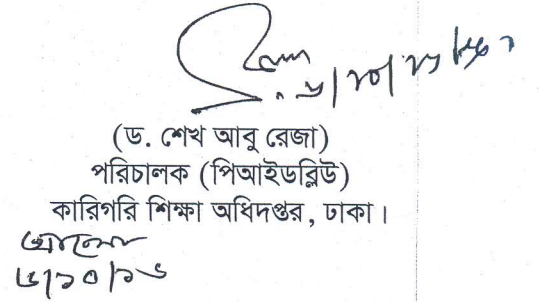 (ড. শেখ আবু রেজা)
পরিচালক (পিআইডব্লিউ)
কারিগরি শিক্ষা অধিদপ্তর, ঢাকা।
৬/১০/১৬